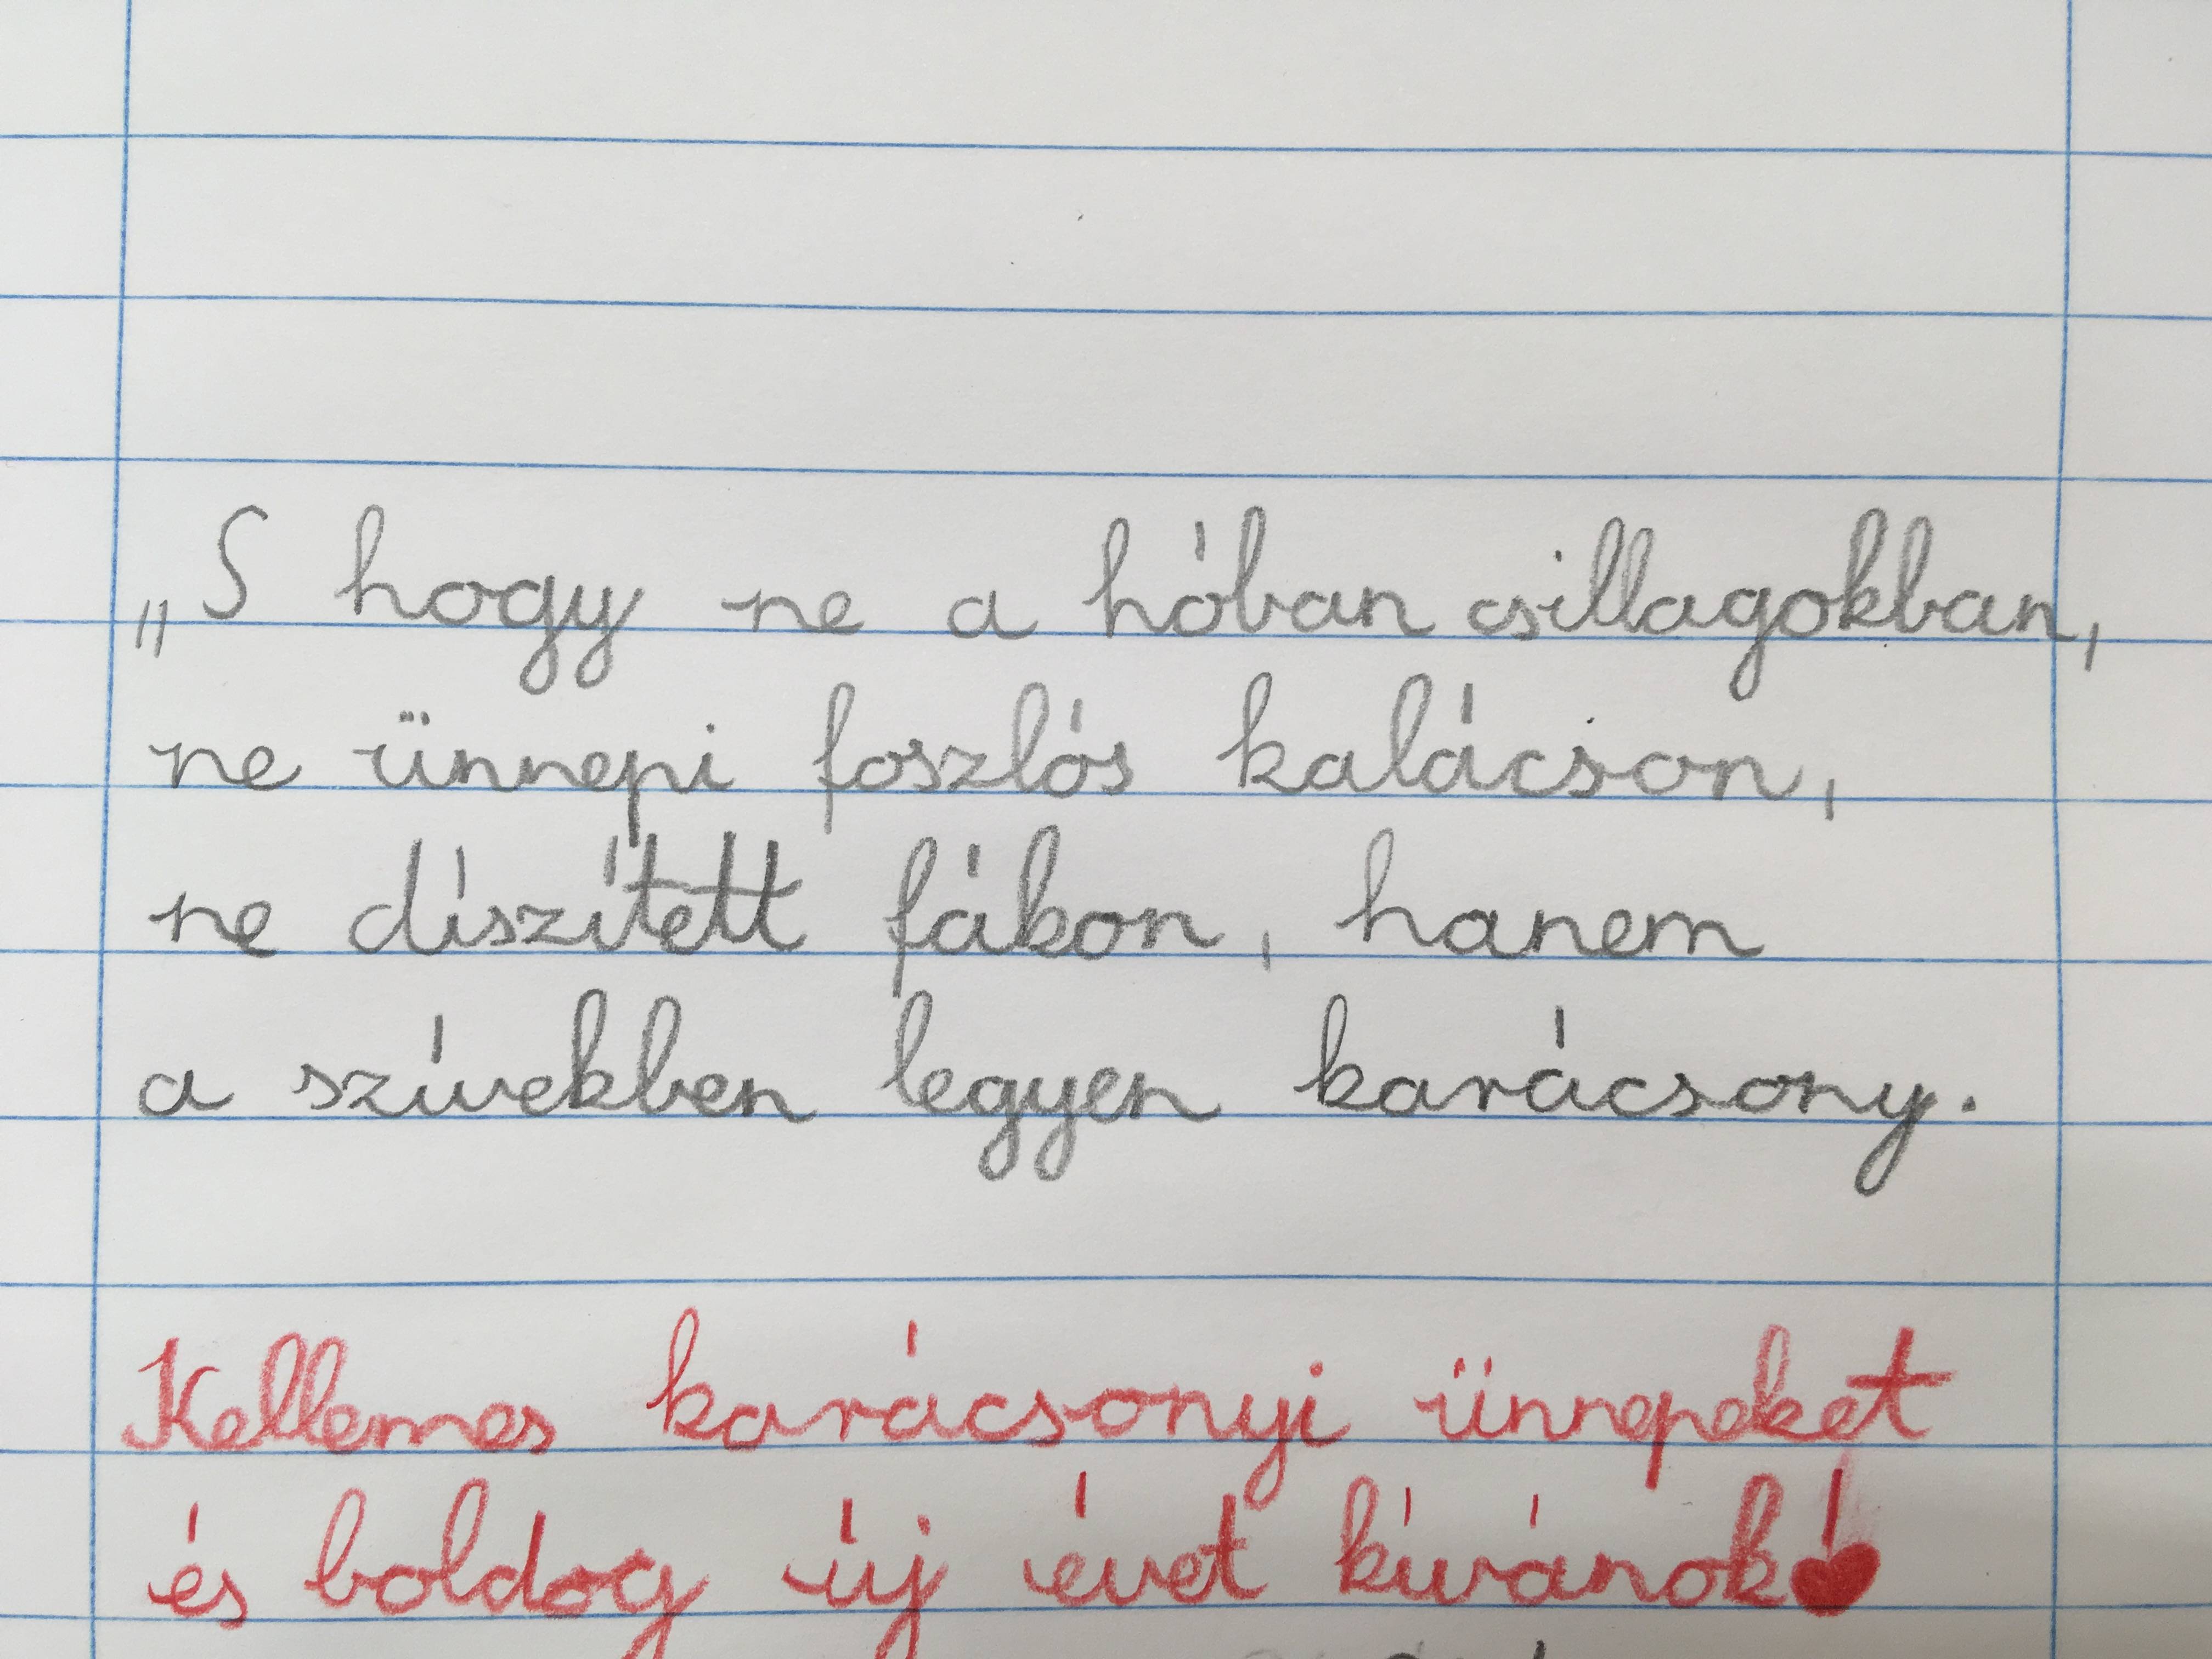 „S hogy ne a hóban csillagokban,
ne ünnepi foszlós kalácson,
ne díszített fákon, hanem
a szívekben legyen karácsony.
Kellemes karácsonyi ünnepeket
és boldog új évet kívánok!